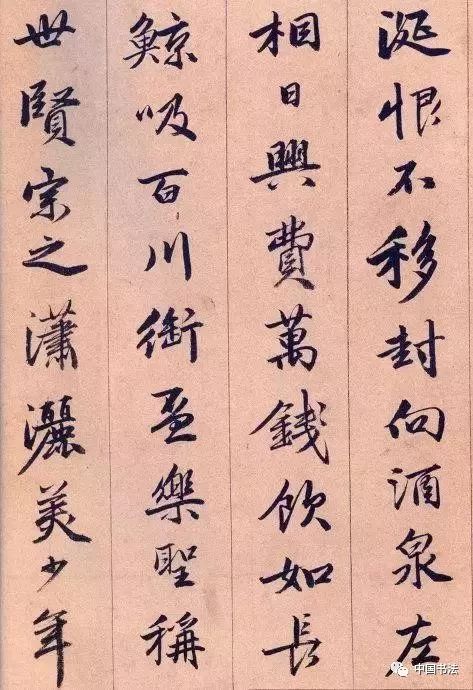 涎恨不移封向酒泉左
相日興費萬錢飲如長
鯨吸百川銜盃樂聖稱
世賢宗之瀟灑美少年
中国书法